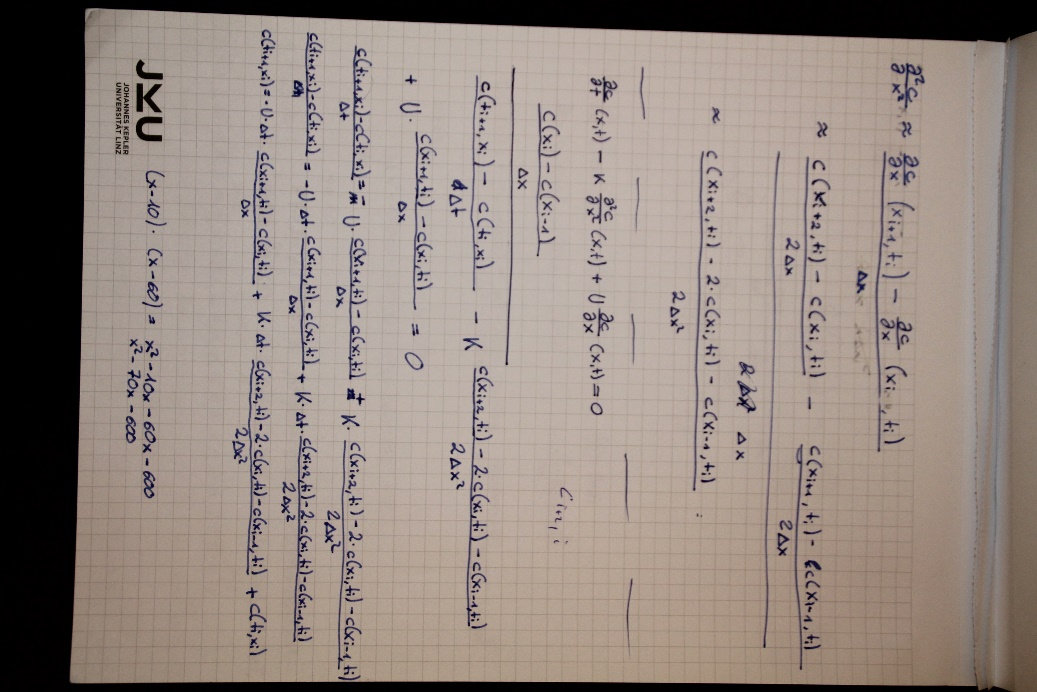 ∂²c/∂x² ≈ (∂c/∂x (xi+1, ti) − ∂c/∂x (xi, ti)) / Δx
≈ ((c(xi+2, ti) − c(xi, ti)) / 2Δx − (c(xi+1, ti) − c(xi-1, ti)) / 2Δx) / Δx
≈ (c(xi+2, ti) − 2·c(xi, ti) − c(xi-1, ti)) / 2Δx²
∂c/∂t (x,t) − K ∂²c/∂x² (x,t) + U ∂c/∂x (x,t) = 0
Ci+2, i
(c(xi) − c(xi-1)) / Δx
(c(ti+1, xi) − c(ti, xi)) / Δt − K (c(xi+2, ti) − 2·c(xi, ti) − c(xi-1, ti)) / 2Δx²
+ U · (c(xi+1, ti) − c(xi, ti)) / Δx = 0
(c(ti+1, xi) − c(ti, xi)) / Δt = U · (c(xi+1, ti) − c(xi, ti)) / Δx + K · (c(xi+2, ti) − 2·c(xi, ti) − c(xi-1, ti)) / 2Δx²
c(ti+1, xi) − c(ti, xi) = −U·Δt · (c(xi+1, ti) − c(xi, ti)) / Δx + K·Δt · (c(xi+2, ti) − 2·c(xi, ti) − c(xi-1, ti)) / 2Δx²
c(ti+1, xi) = −U·Δt · (c(xi+1, ti) − c(xi, ti)) / Δx + K·Δt · (c(xi+2, ti) − 2·c(xi, ti) − c(xi-1, ti)) / 2Δx² + c(ti, xi)
(x−10)·(x−60) = x² − 10x − 60x − 600
x² − 70x − 600
JKU
JOHANNES KEPLER
UNIVERSITÄT LINZ